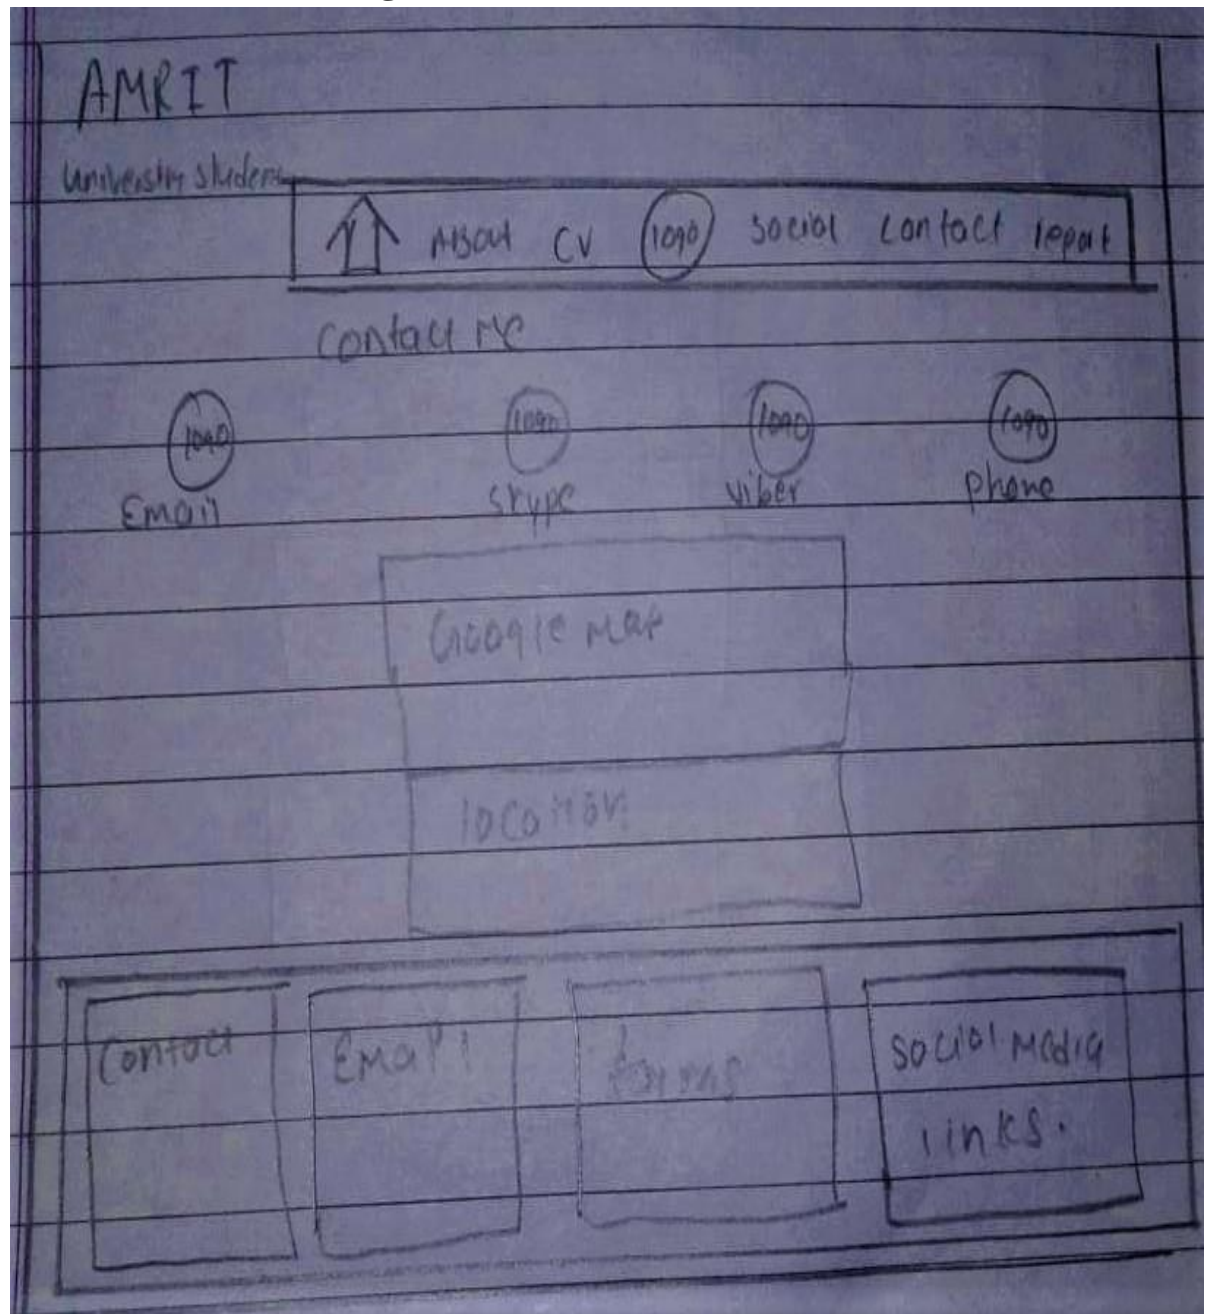 AMRIT
University Student
About CV logo social contact report
Contact Me
logo logo logo logo
Email skype viber phone
Google Map
location
Contact Email forms social media
links.